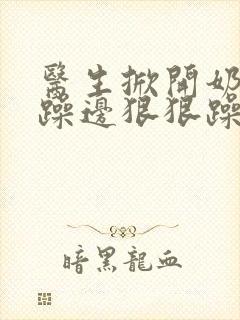 醫生掀開奶
躁邊狠狠躁
暗黑龍血